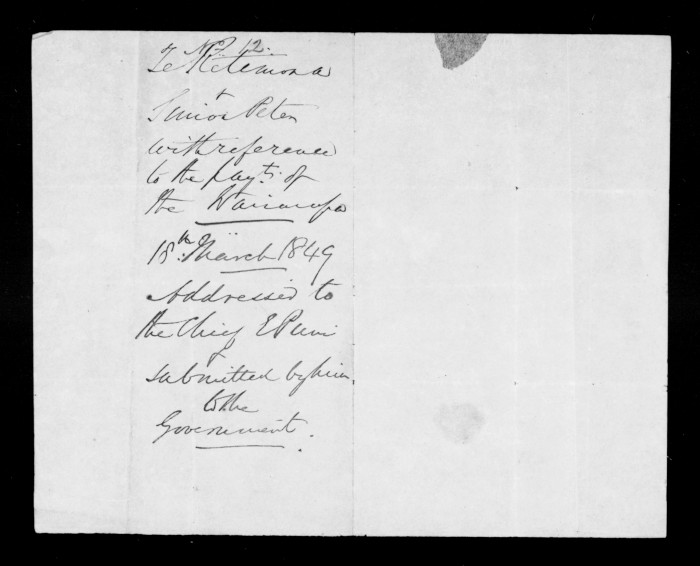 No. 12.
Te Retimona
&
Simon Peter
with reference
to the payt. of
the Wairarapa
18th March 1849
Addressed to
the Chief E Puni
&
submitted by him
to the
Government.